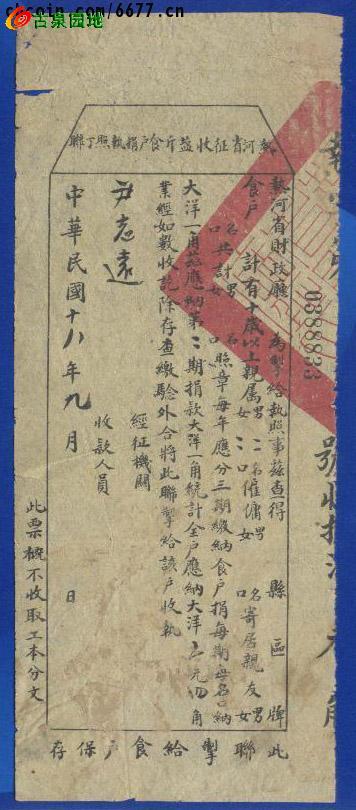 cncoin.com/6677.cn
古泉园地
热河省征收盐斤食户捐執照丁聯
熱河省財政廳 為掣給執照事茲查得 縣 區 牌
食戶 計有十歲以上親属男二名女二口僱傭男 名女 口寄居親友男
名女 口共計男 名女 口照章每年應分三期繳納食戶捐每期每名口納
大洋一角茲應納第二期捐款大洋一角統計全戶應納大洋 元四角
業經如數收訖除存查繳驗外合將此聯掣給該戶收執
經征機關
尹志遠 收款人員
中華民國十八年九月 日
此票概不收取工本分文
此聯掣給食戶保存
0388833
號收捐洋 元 角